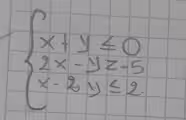 x + y ≤ 0
2x - y ≥ -5
x - 2y ≤ 2.